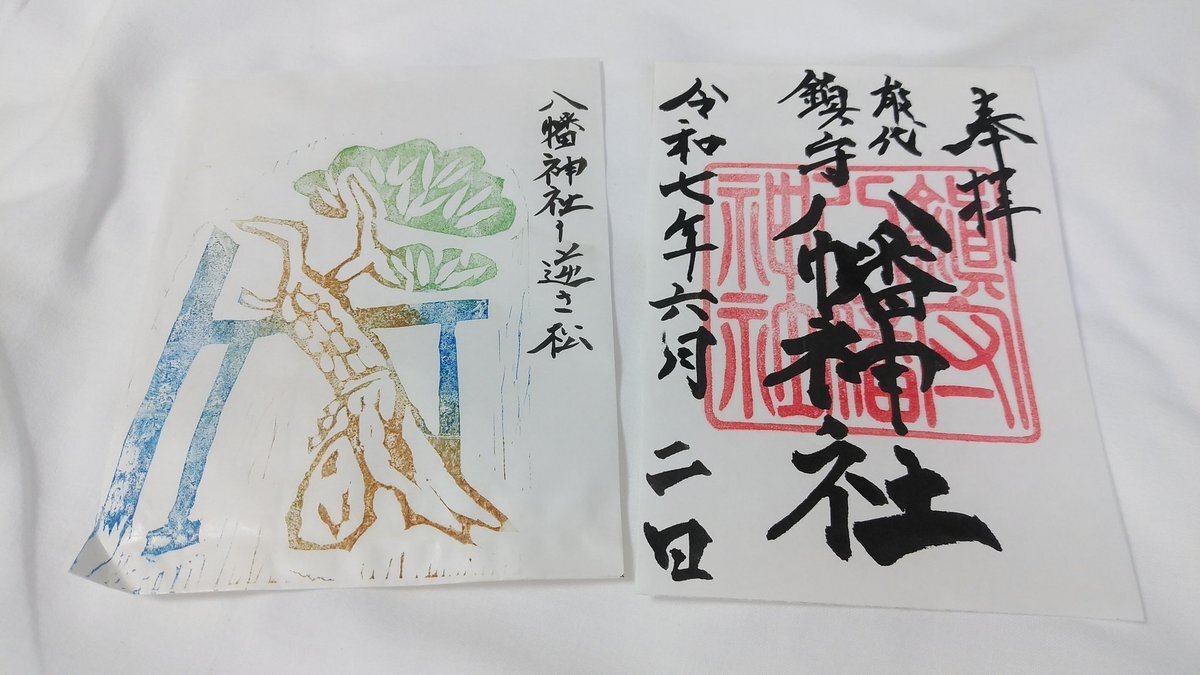 奉拝
能代
鎮守
八幡神社
令和七年六月 二日
鎮守
八幡
神社
八幡神社の逆さ松